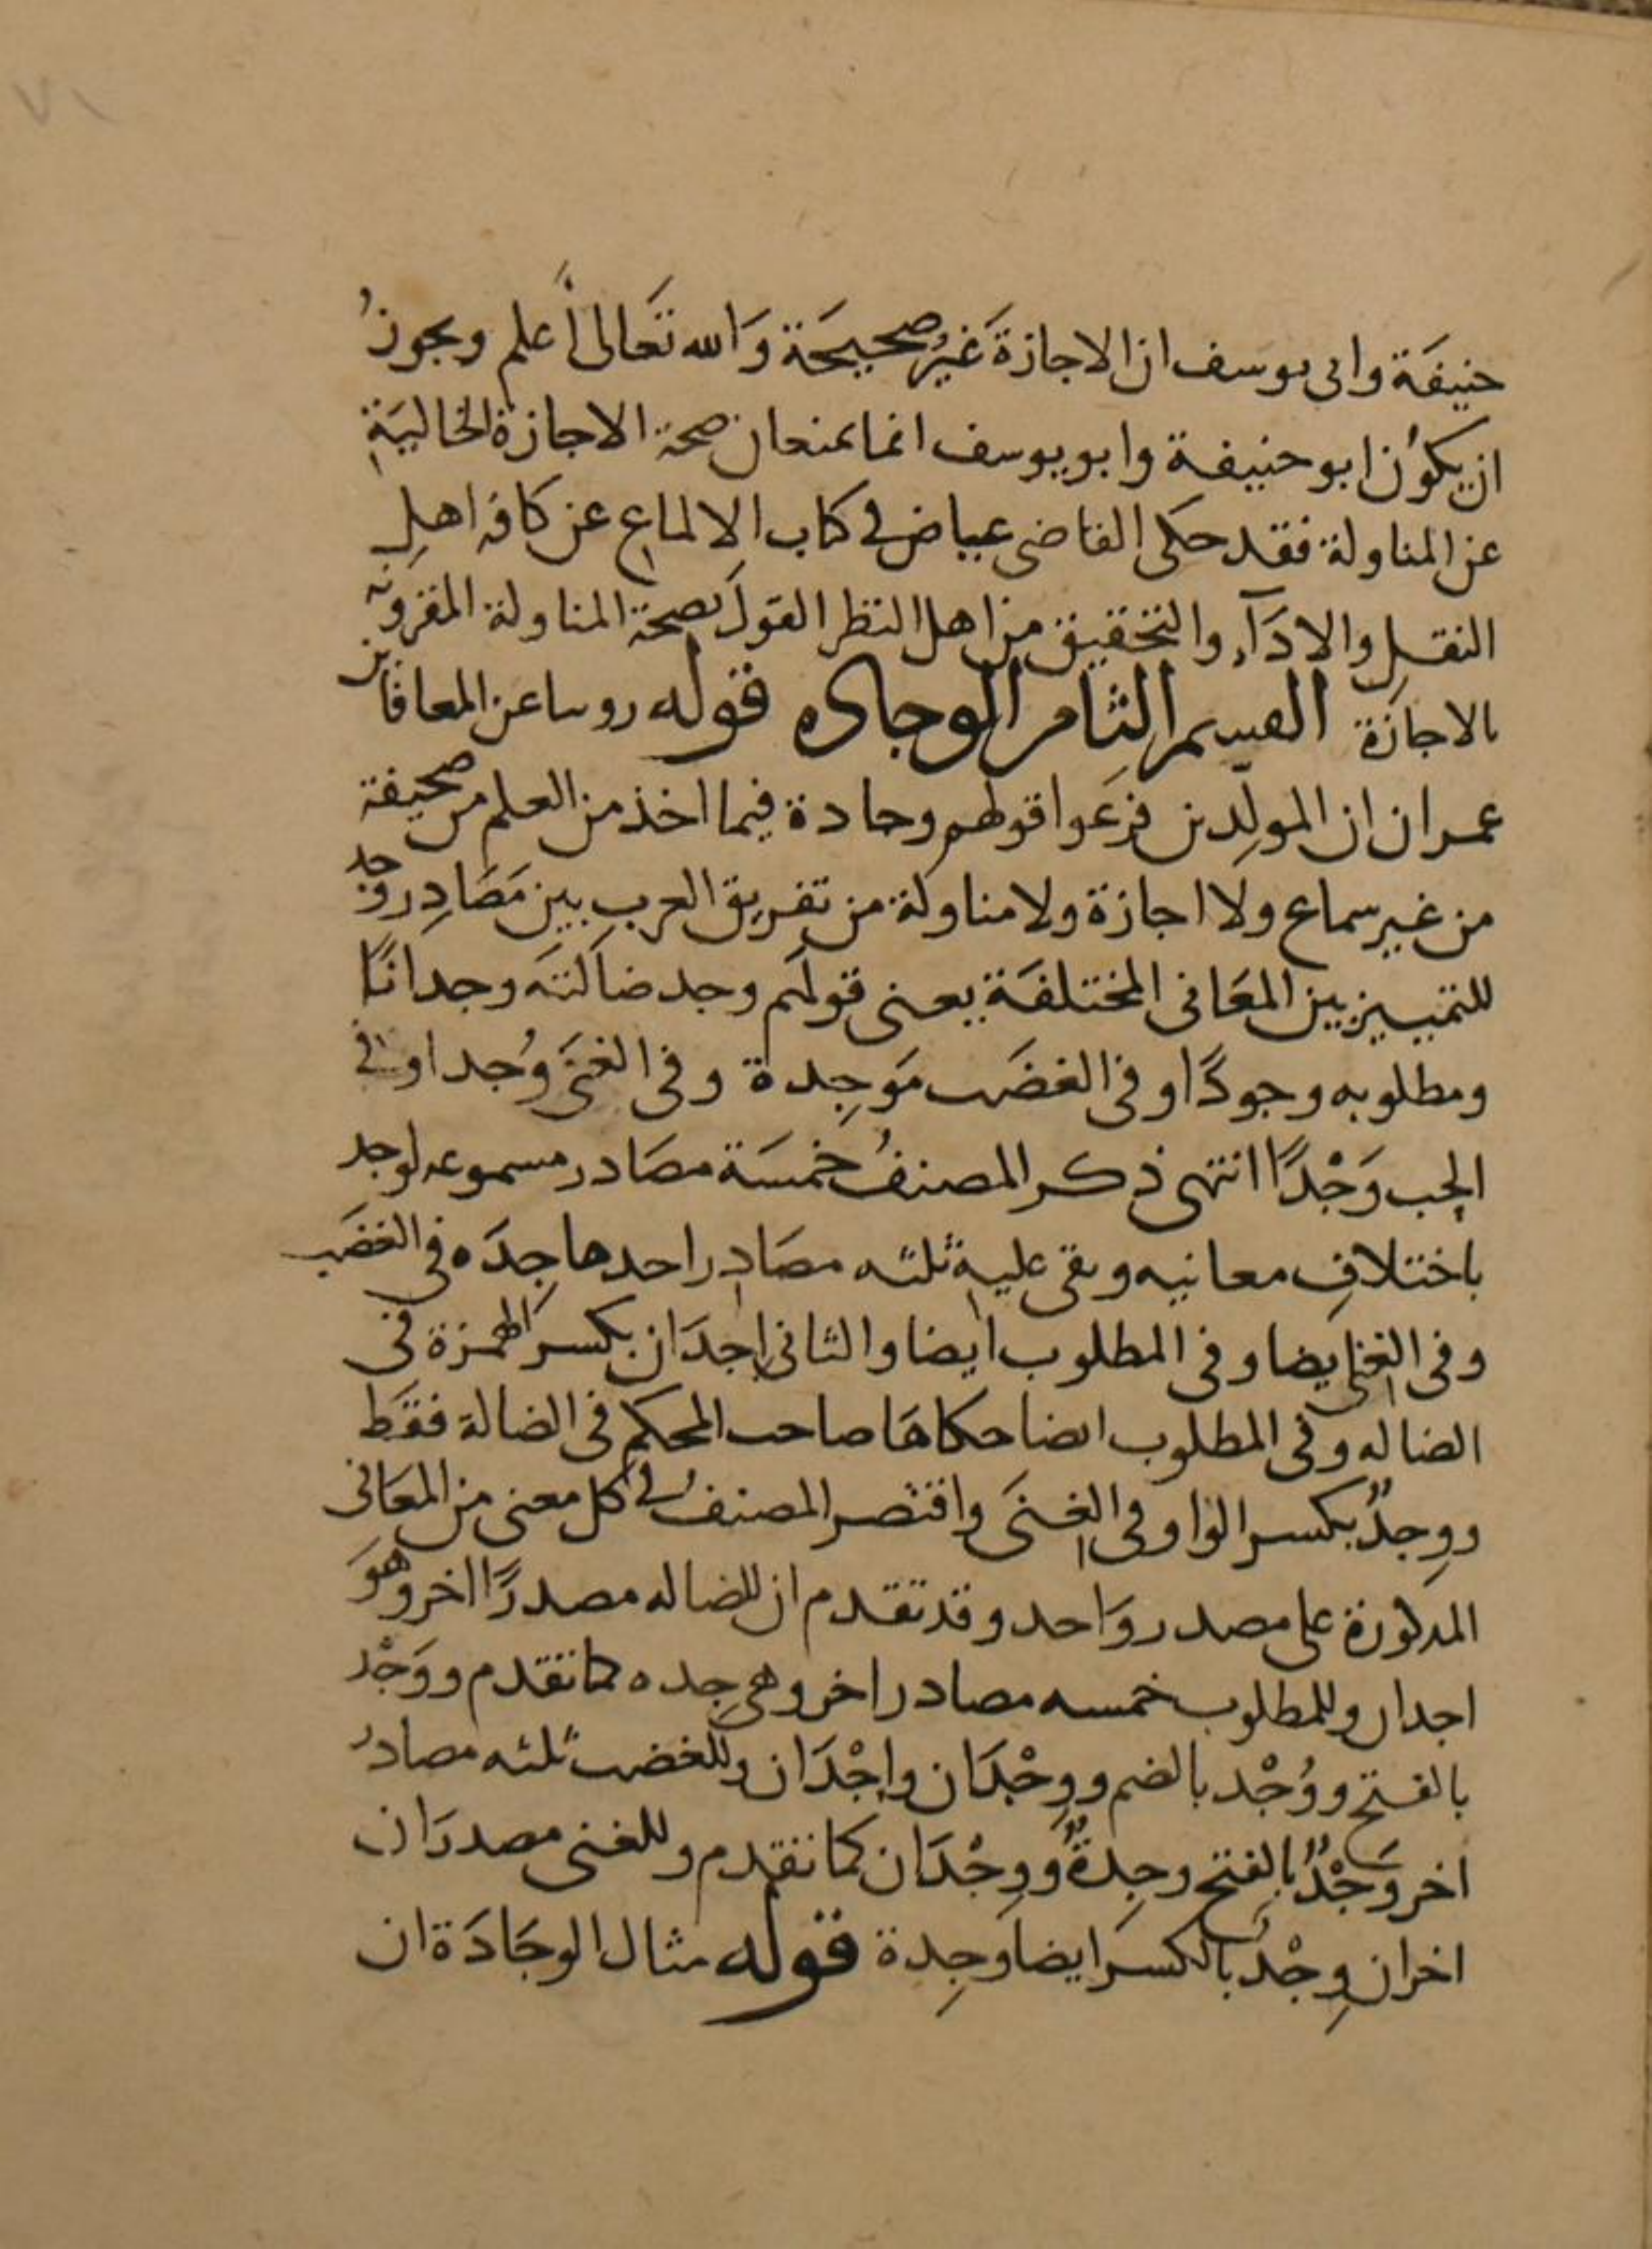 ٧١
حنيفَة وابى يوسف ان الاجازة غَيرُ صحيحَة وَالله تَعالى أعلم ويجوزُ
ان يكوُن ابو حنيفة وابو يوسف انما يمنعان صحة الاجازة الخاليَةِ
عن المناولة فقد حكى القاضى عياض فى كتاب الالماع عن كافه اهلِ
النقلِ والادَآءِ والتحقيق من اهل النظر القولَ بصحة المناولة المقرونه
بالاجازَة القسم الثامن الوجاده قوله روينا عن المعافا بن
عمران ان المولِدين فرعَوا قولهم وجادة فيما اخذ من العلم من صحيفة
من غير سماع ولا اجازة ولا مناولة من تفريق العرب بين مَصَادِر وجد
للتمييز بين المعَانى المختلفَة يعنى قولهم وجد ضالته وجدانًا
ومطلوبه وجودًا وفى الغضَب مَوجِدة وفى الغنَى وُجدا وفى
الحب وَجْدًا انتهى ذكر المصنفُ خمسَة مصَادر مسموعه لوجد
باختلافِ معانيه وبقى عليه ثلثه مصَادِر احدها جِدَه فى الغضَب
وفى الغِنى ايضا وفى المطلوب ايضا والثانى اِجدَان بكسر الهمزة فى
الضاله وفى المطلوب ايضا حكاهَا صاحب المحكم فى الضالة فقَط
ووِجدٌ بكسر الواو فى الغِنَى واقتصر المصنفُ فى كل معنى من المعَانى
المذكورة على مصدر وَاحد وقد تقدم ان للضاله مصدرًا اخر وهَوَ
اجدان وللمطلوب خمسه مصادر اخر وهى جِده كما تقدم ووَجْد
بالفتح ووُجْد بالضم ووِجْدَان واِجْدَان وللغضب ثلثه مصادرُ
اخر وَجْدٌ بالفتح وجِدةٌ ووِجْدَان كما تقدم وللغنى مصدرَان
اخران وِجْد بالكسر ايضا وَجِدة قوله مثال الوجَادَة ان